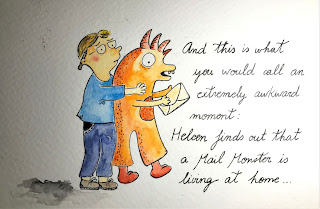 And this is what
you would call an
extremely awkward
moment:
Heleen finds out that
a Mail Monster is
living at home...